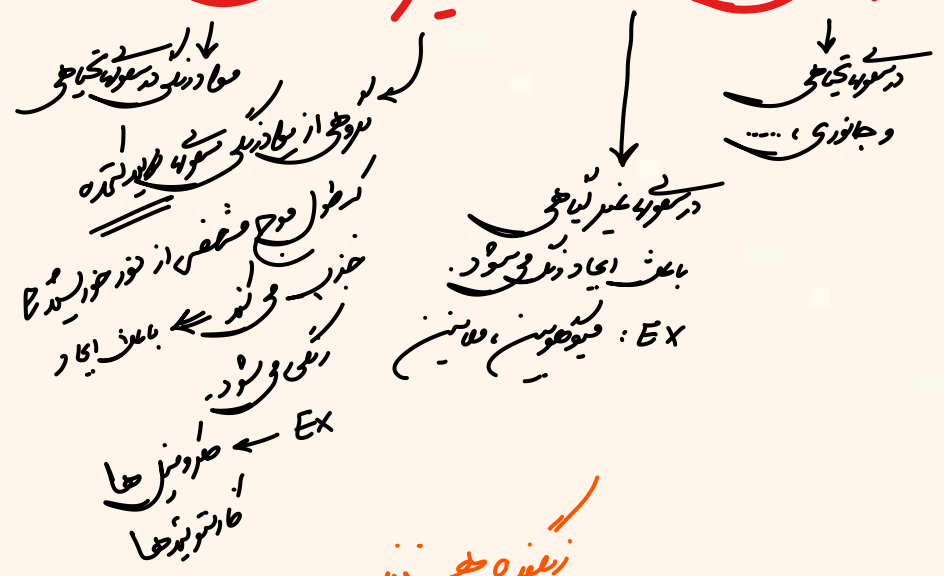 در سلول‌های گیاهی
و جانوری ، .....
در سلول‌های غیر گیاهی
باعث ایجاد رنگ می‌شود.
Ex : هموگلوبین ، ملانین
مواد رنگی در سلول‌های گیاهی
گروهی از مواد رنگی سلول‌های
که طول موج مشخصی از نور خورشید را
جذب می‌کند باعث ایجاد
رنگی می‌شود.
Ex
کلروفیل ها
کارتنوئیدها